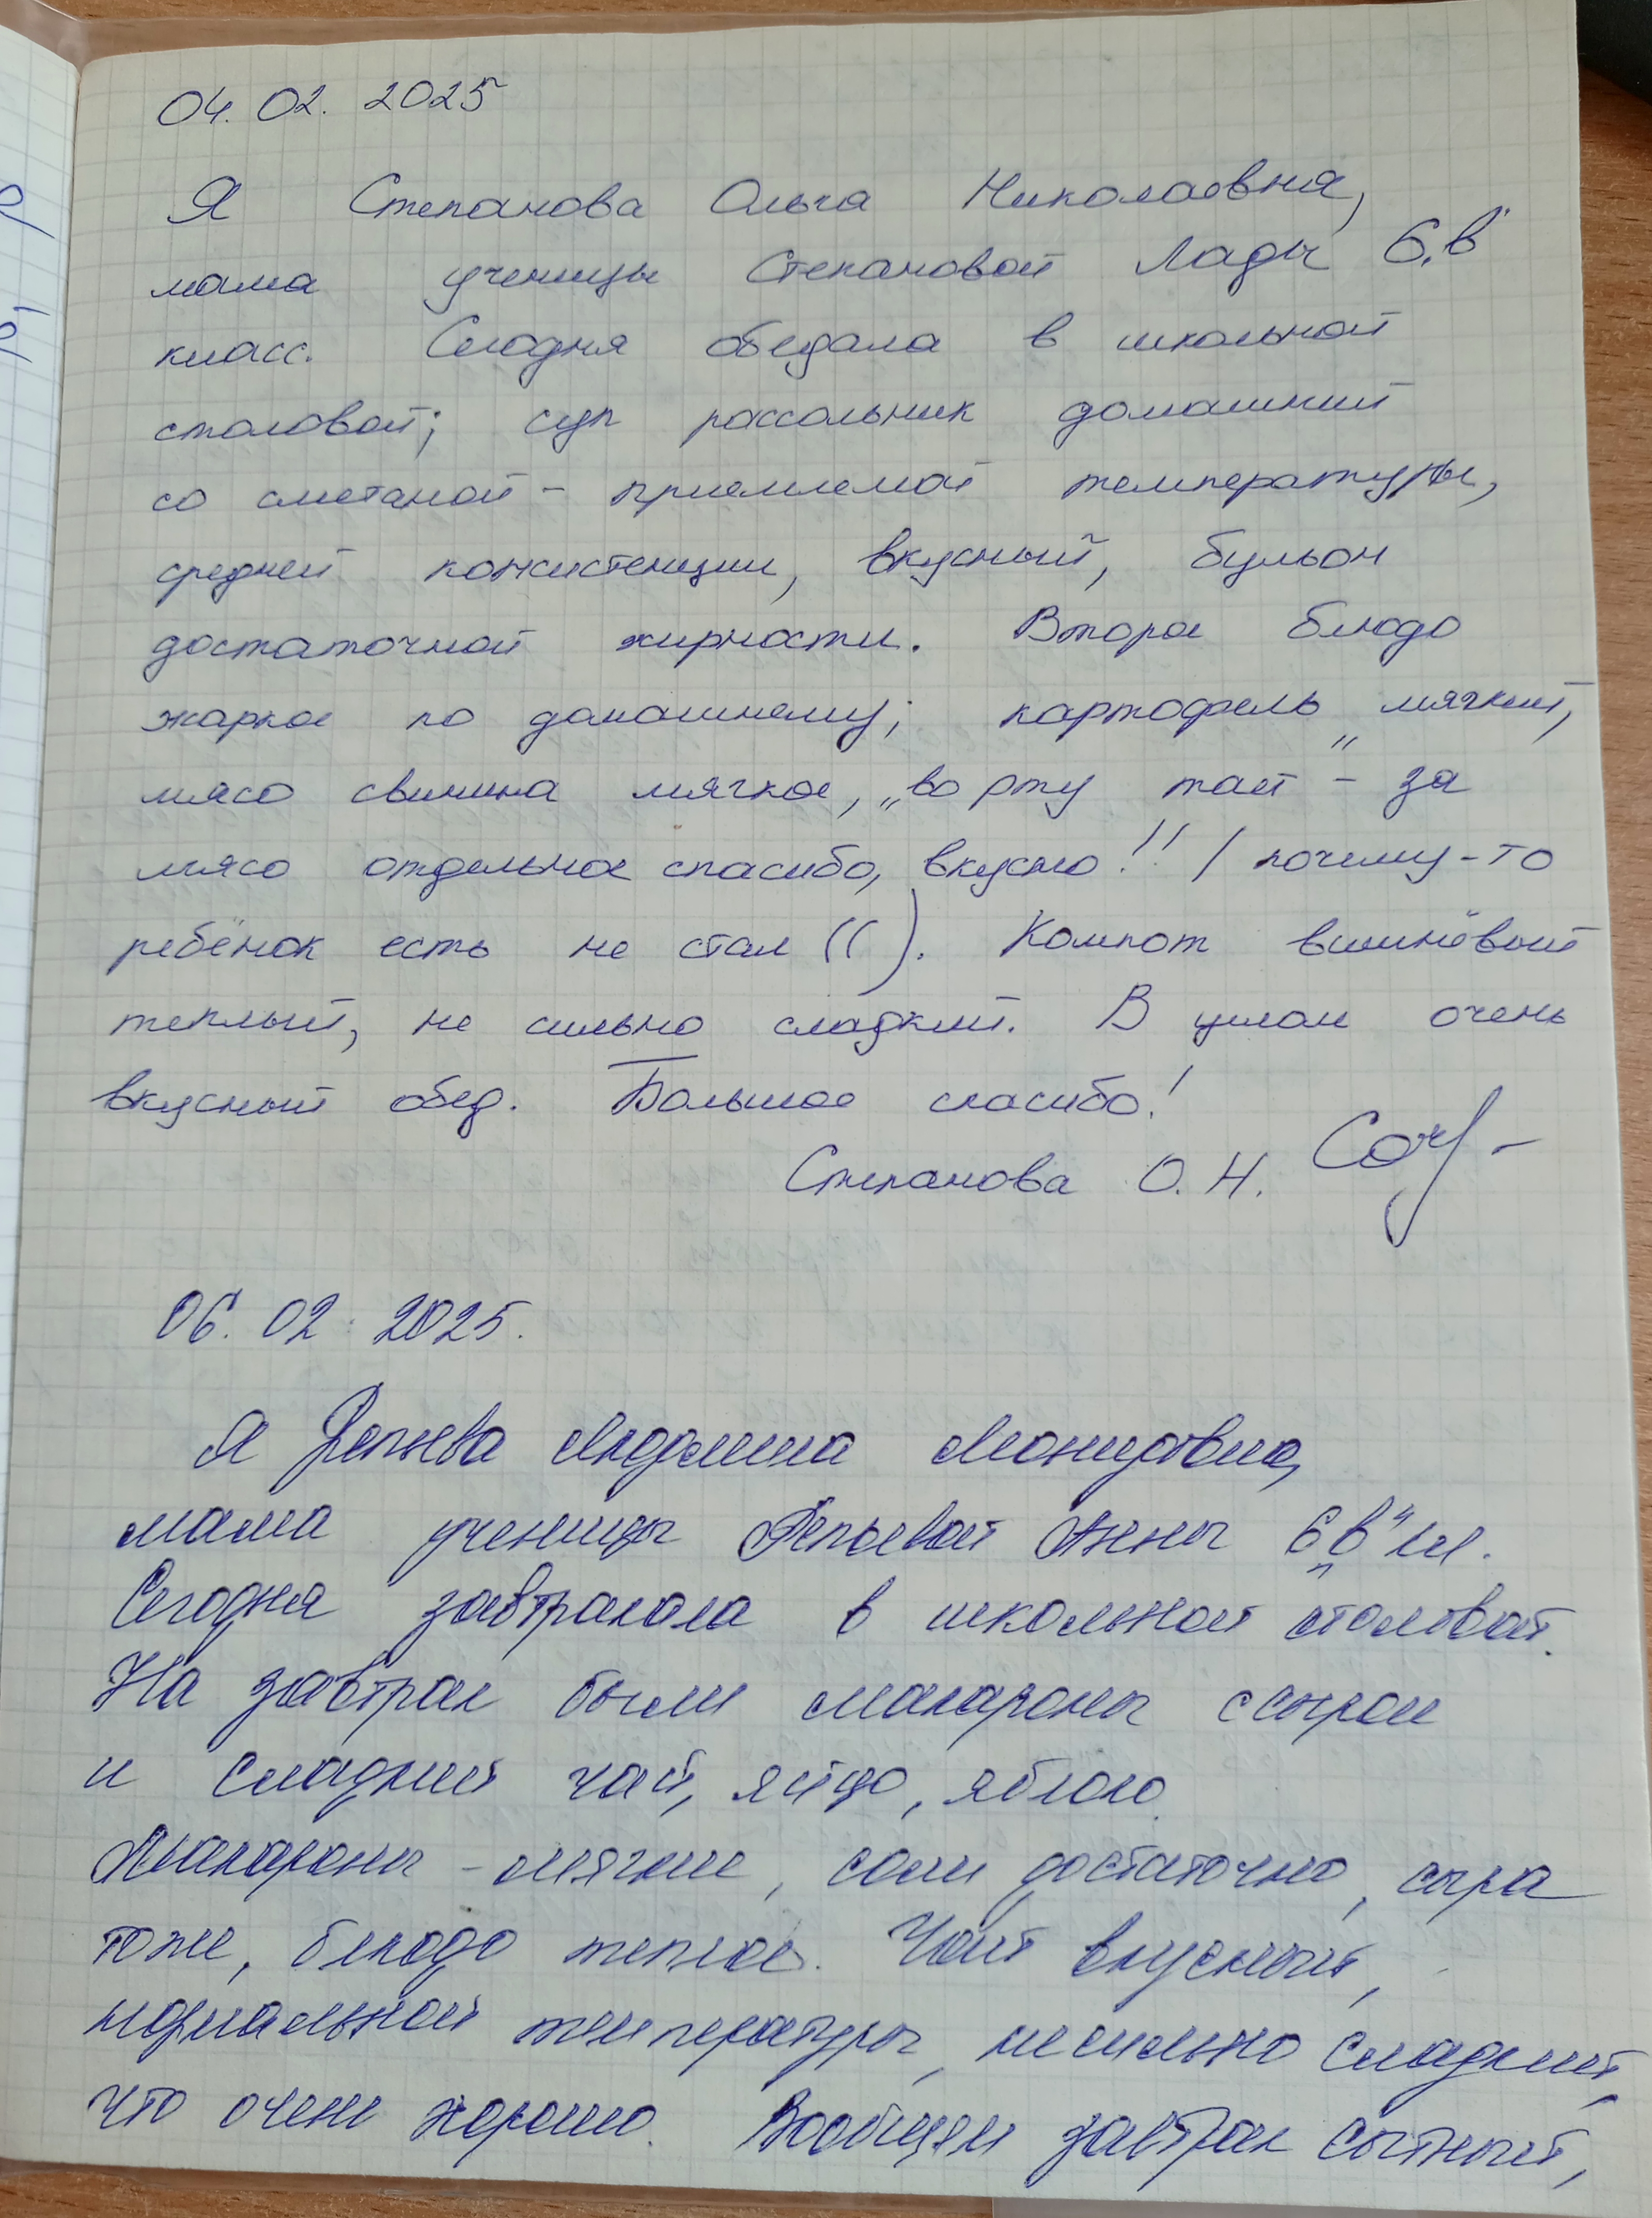 04. 02. 2025
Я Степанова Ольга Николаевна,
мама ученицы Степановой Лады 6„в"
класс. Сегодня обедала в школьной
столовой; суп рассольник домашний
со сметаной - приемлемой температуры,
средней консистенции, вкусный, бульон
достаточной жирности. Второе блюдо
жаркое по домашнему; картофель мягкий,
мясо свинина мягкое, „во рту тает" - за
мясо отдельное спасибо, вкусно!! / почему-то
ребёнок есть не стал (( ). Компот вишнёвый
теплый, не сильно сладкий. В целом очень
вкусный обед. Большое спасибо!
Степанова О. Н.
06. 02. 2025.
Я Репьева Людмила Леонидовна,
мама ученицы Репьевой Анны 6„в" кл.
Сегодня завтракала в школьной столовой.
На завтрак были макароны с сыром
и сладкий чай, яйцо, яблоко.
Макароны - мягкие, соли достаточно, сыра
тоже, блюдо теплое. Чай вкусный,
нормальной температуры, не сильно сладкий,
что очень хорошо. Вообщем завтрак сытный,